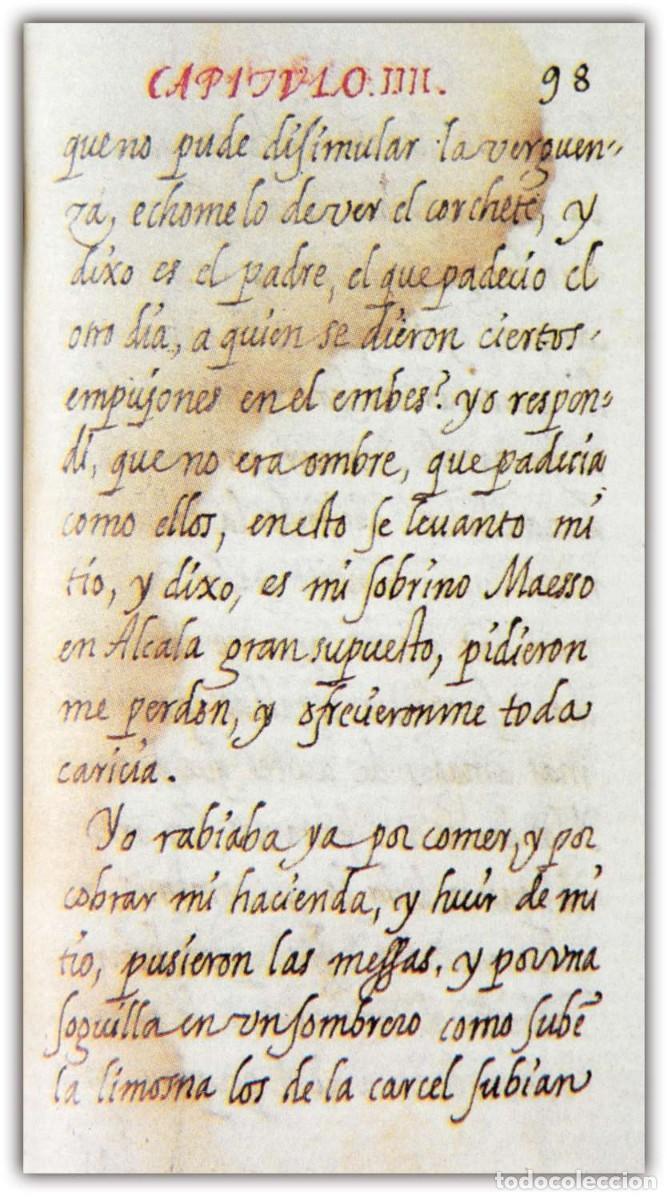 CAPITVLO.IIII. 98
que no pude disimular la verguen-
za, echomelo de ver el corchete, y
dixo es el padre, el que padecio el
otro dia, a quien se dieron ciertos
empujones en el embes? yo respon-
di, que no era ombre, que padecia
como ellos, en esto se leuanto mi
tio, y dixo, es mi sobrino Maesso
en Alcala gran supuesto, pidieron
me perdon, y ofrecieronme toda
caricia.
Yo rabiaba ya por comer, y por
cobrar mi hacienda, y huir de mi
tio, pusieron las messas, y por vna
soguilla en vn sombrero como subē
la limosna los de la carcel subian
todocoleccion